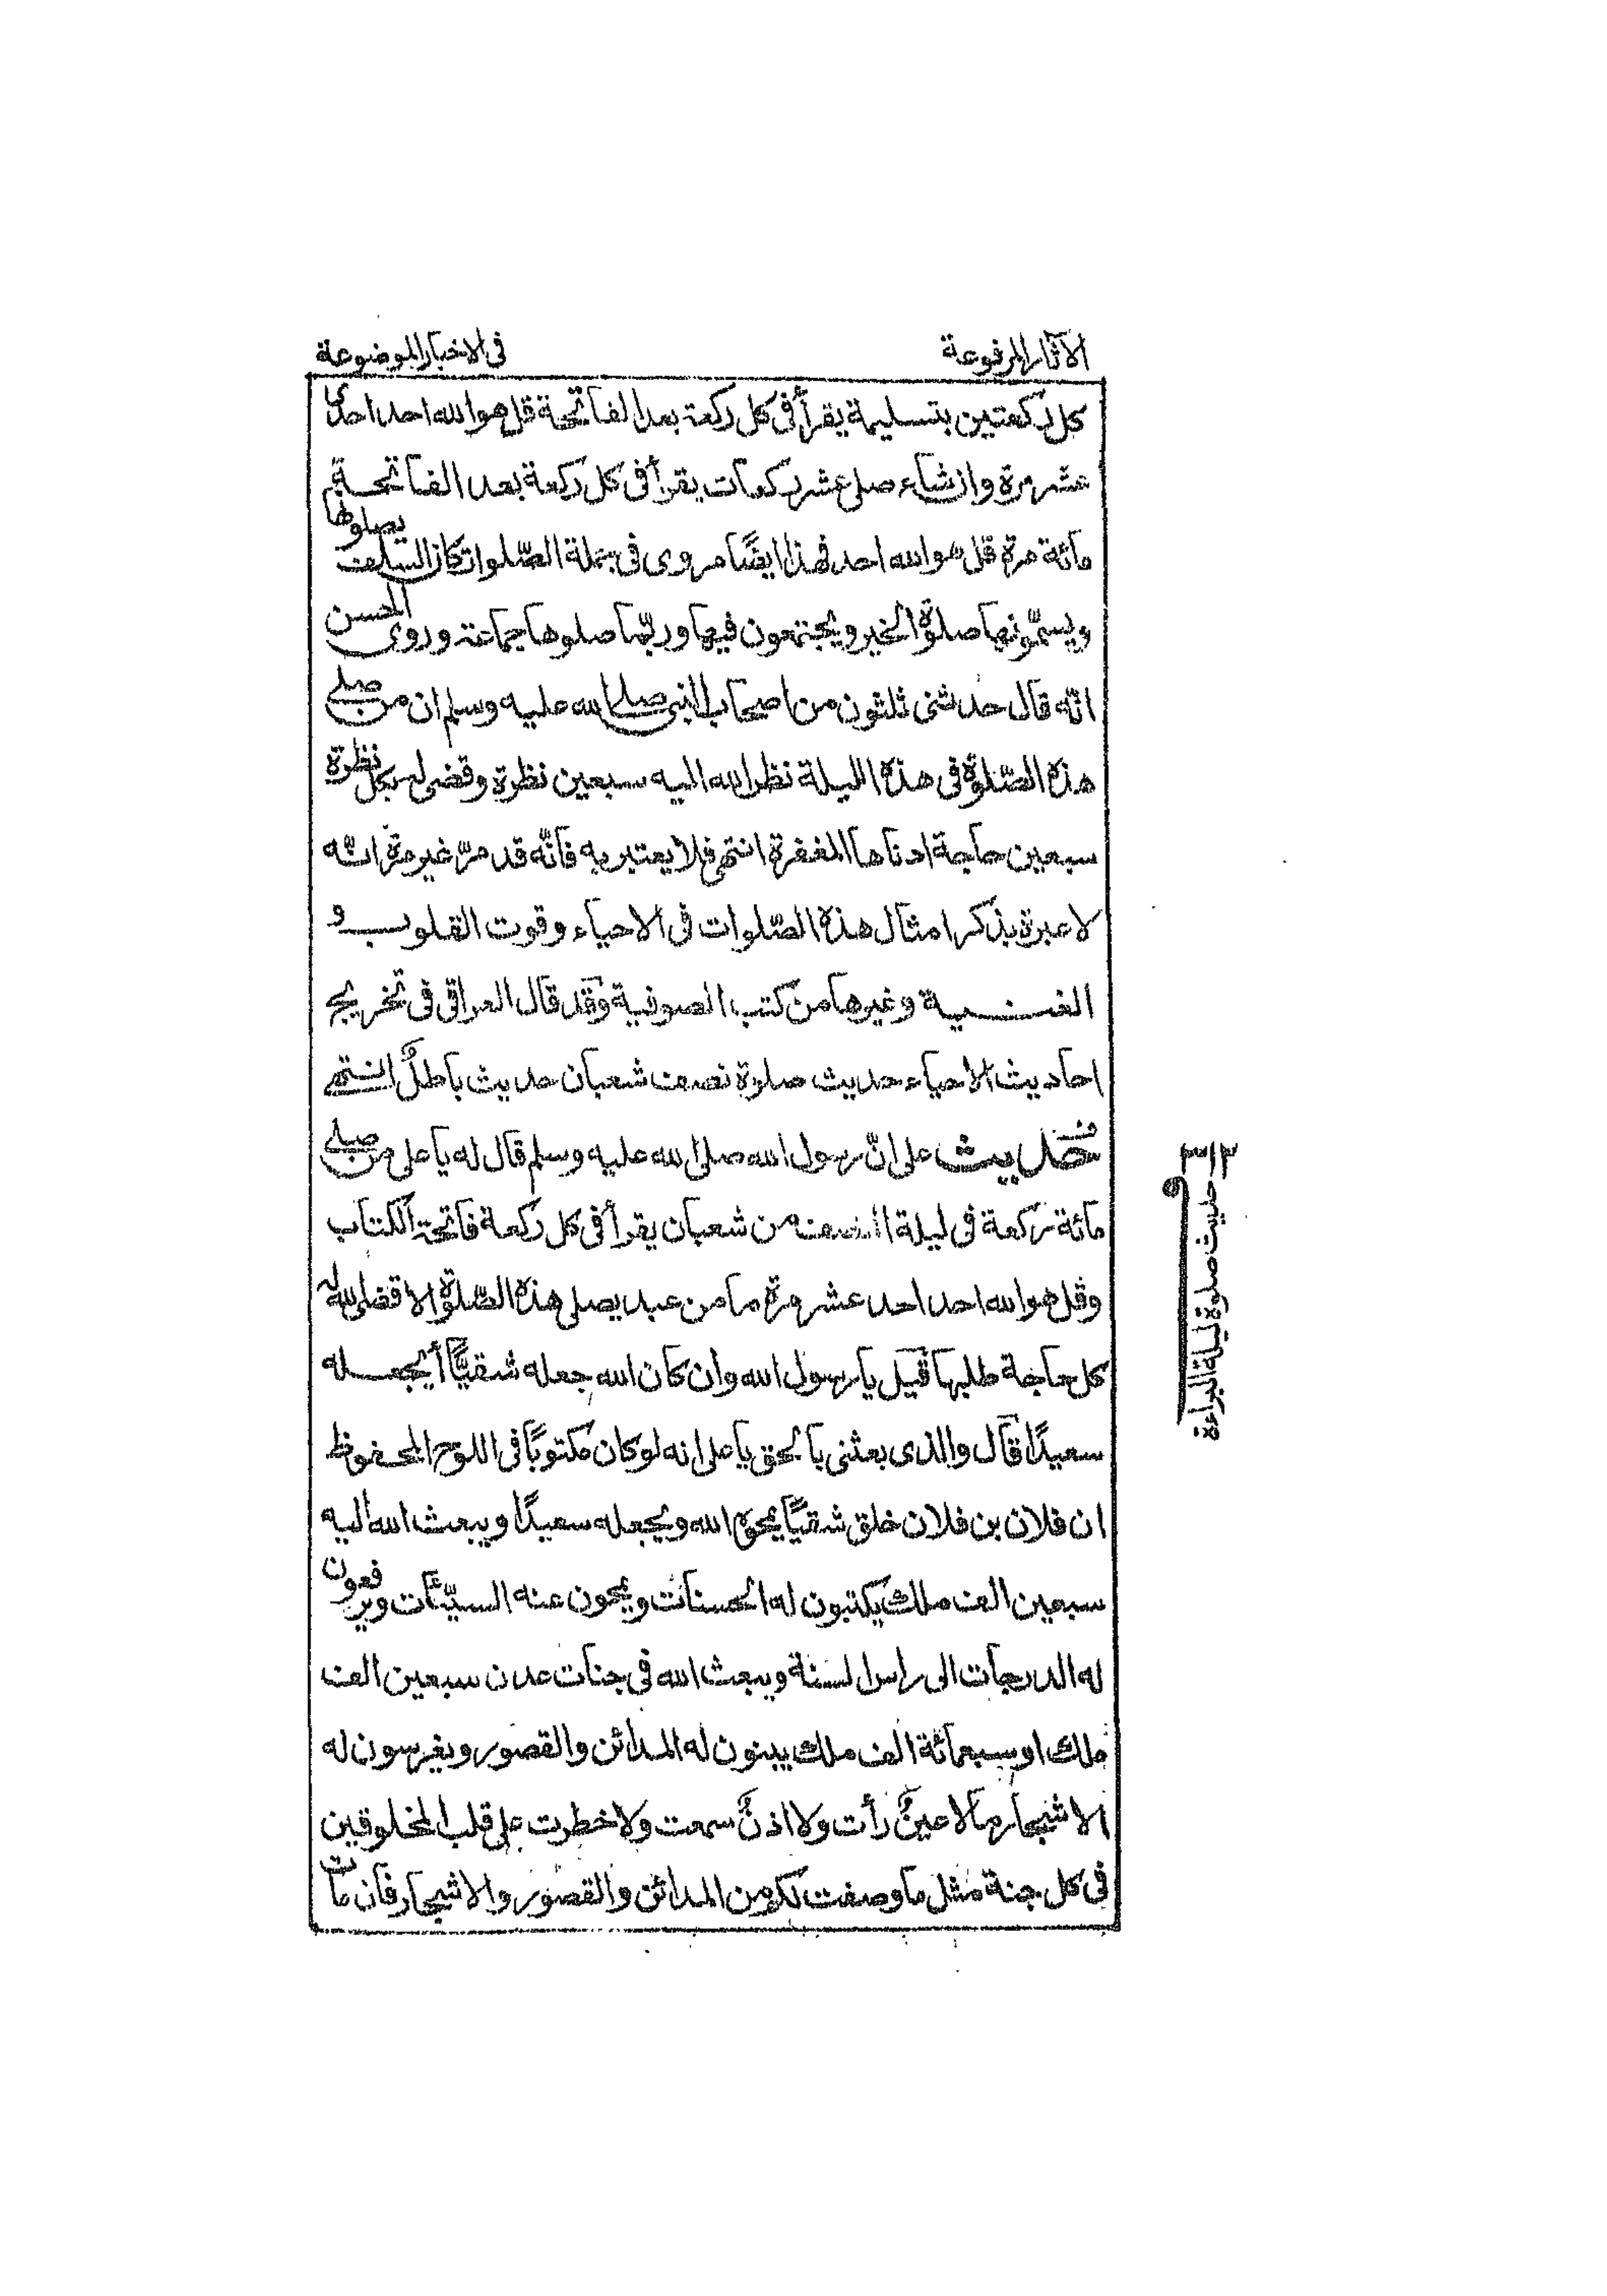 الآثار المرفوعة
فى الاخبار الموضوعة
كل ركعتين بتسليمة يقرأ فى كل ركعة بعد الفاتحة قل هو الله احد احدى
عشر مرة وان شاء صلى عشر ركعات يقرأ فى كل ركعة بعد الفاتحة
مائة مرة قل هو الله احد فهذا ايضًا مروى فى جملة الصّلوات كان السلف يصلونها
ويسمّونها صلوة الخير ويجتمعون فيها وربّما صلوها جماعة وروى الحسن
انّه قال حدثنى ثلثون من اصحاب النبى صلى الله عليه وسلم ان من صلى
هذه الصّلوة فى هذه الليلة نظر الله اليه سبعين نظرة وقضى له بكل نظرة
سبعين حاجة ادناها المغفرة انتهى فلا يعتبر به فانّه قد مرّ غير مرة انّه
لا عبرة بذكر امثال هذه الصّلوات فى الاحياء وقوت القلوب و
الغنية وغيرها من كتب الصوفية وقد قال العراقى فى تخريج
احاديث الاحياء حديث صلوة نصف شعبان حديث باطلٌ انتهى
حديث على انّ رسول الله صلى الله عليه وسلم قال له يا على من صلى
مائة ركعة فى ليلة النصف من شعبان يقرأ فى كل ركعة فاتحة الكتاب
وقل هو الله احد احد عشر مرة ما من عبد يصلى هذه الصّلوة الا قضى الله له
كل حاجة طلبها قيل يا رسول الله وان كان الله جعله شقيًّا أيجعله
سعيدًا قال والذى بعثنى بالحق يا على انه لو كان مكتوبًا فى اللوح المحفوظ
ان فلان بن فلان خلق شقيًّا يمحوه الله ويجعله سعيدًا ويبعث الله اليه
سبعين الف ملك يكتبون له الحسنات ويمحون عنه السيّئات ويرفعون
له الدرجات الى راس السنة ويبعث الله فى جنات عدن سبعين الف
ملك او سبعمائة الف ملك يبنون له المدائن والقصور ويغرسون له
الاشجار ما لا عينٌ رأت ولا اذنٌ سمعت ولا خطرت على قلب المخلوقين
فى كل جنة مثل ما وصفت لكم من المدائن والقصور والاشجار فان مات
حديث صلوة ليلة البراءة